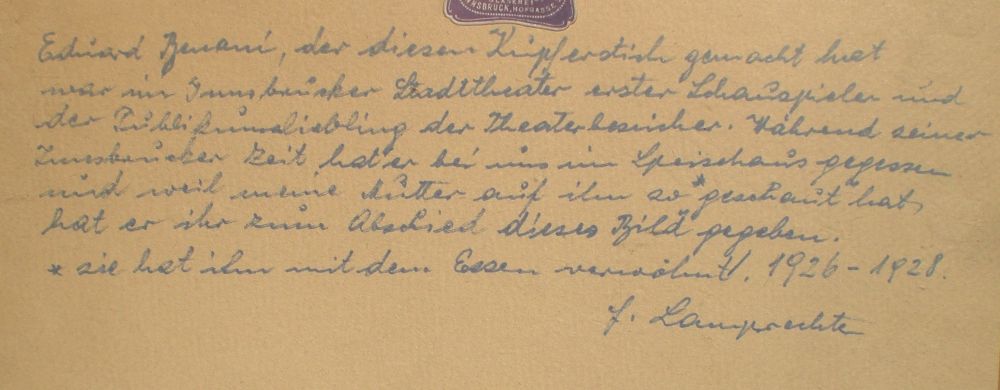 GLASEREI
INNSBRUCK, HOFGASSE
Eduard Benani, der diesen Kupferstich gemacht hat
war im Innsbrucker Stadttheater erster Schauspieler und
der Publikumsliebling der Theaterbesucher. Während seiner
Innsbrucker Zeit hat er bei uns im Speisehaus gegessen
und weil meine Mutter auf ihn so * geschaut hat,
hat er ihr zum Abschied dieses Bild gegeben.
* sie hat ihn mit dem Essen verwöhnt!. 1926 - 1928.
f. Lamprechter